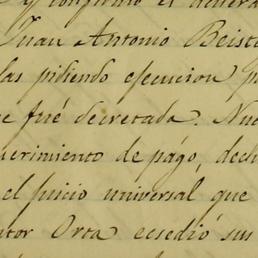 y confirmó el acuerd
Juan Antonio Beist
las pidiendo ejecucion p
e fué decretada. Nue
uerimiento de pago, decl
el juicio universal que
ntor Orta ecsedió sus